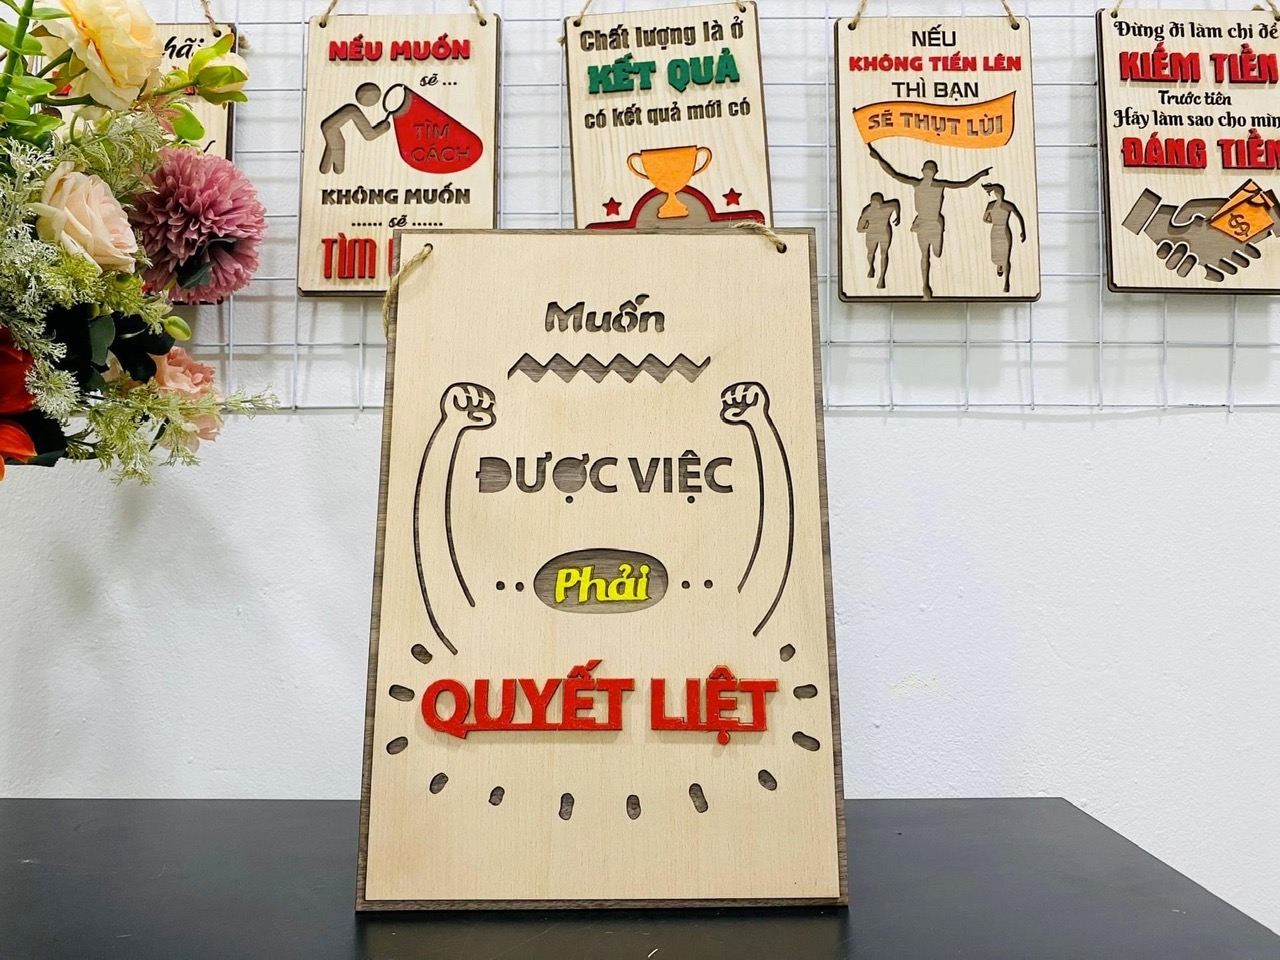 NẾU MUỐN
sẽ ...
TÌM
CÁCH
KHÔNG MUỐN
...... sẽ ......
TÌM
Chất lượng là ở
KẾT QUẢ
có kết quả mới có
NẾU
KHÔNG TIẾN LÊN
THÌ BẠN
SẼ THỤT LÙI
Đừng đi làm chỉ để
KIẾM TIỀN
Trước tiên
Hãy làm sao cho mìn
ĐÁNG TIỀN
$
Muốn
ĐƯỢC VIỆC
.. Phải ..
QUYẾT LIỆT